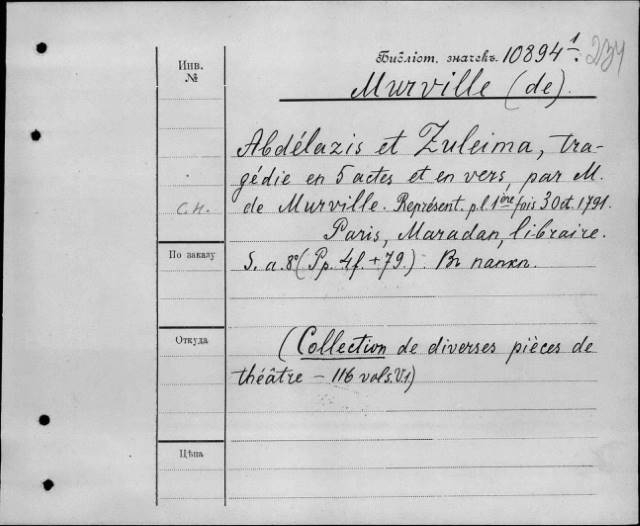 Инв. №
Библіот. значекъ. 10894 1. 234
Murville (de).
Abdélazis et Zuleima, tra-
gédie en 5 actes et en vers, par M.
С.Н.
de Murville. Représent. p.l. 1ère fois 3 Oct. 1791.
Paris, Maradan, libraire.
По заказу
S. a. 8° (Pp. 4f. + 79.). Въ папкѣ.
Откуда
(Collection de diverses pièces de
théâtre – 116 vols. V.1)
Цѣна